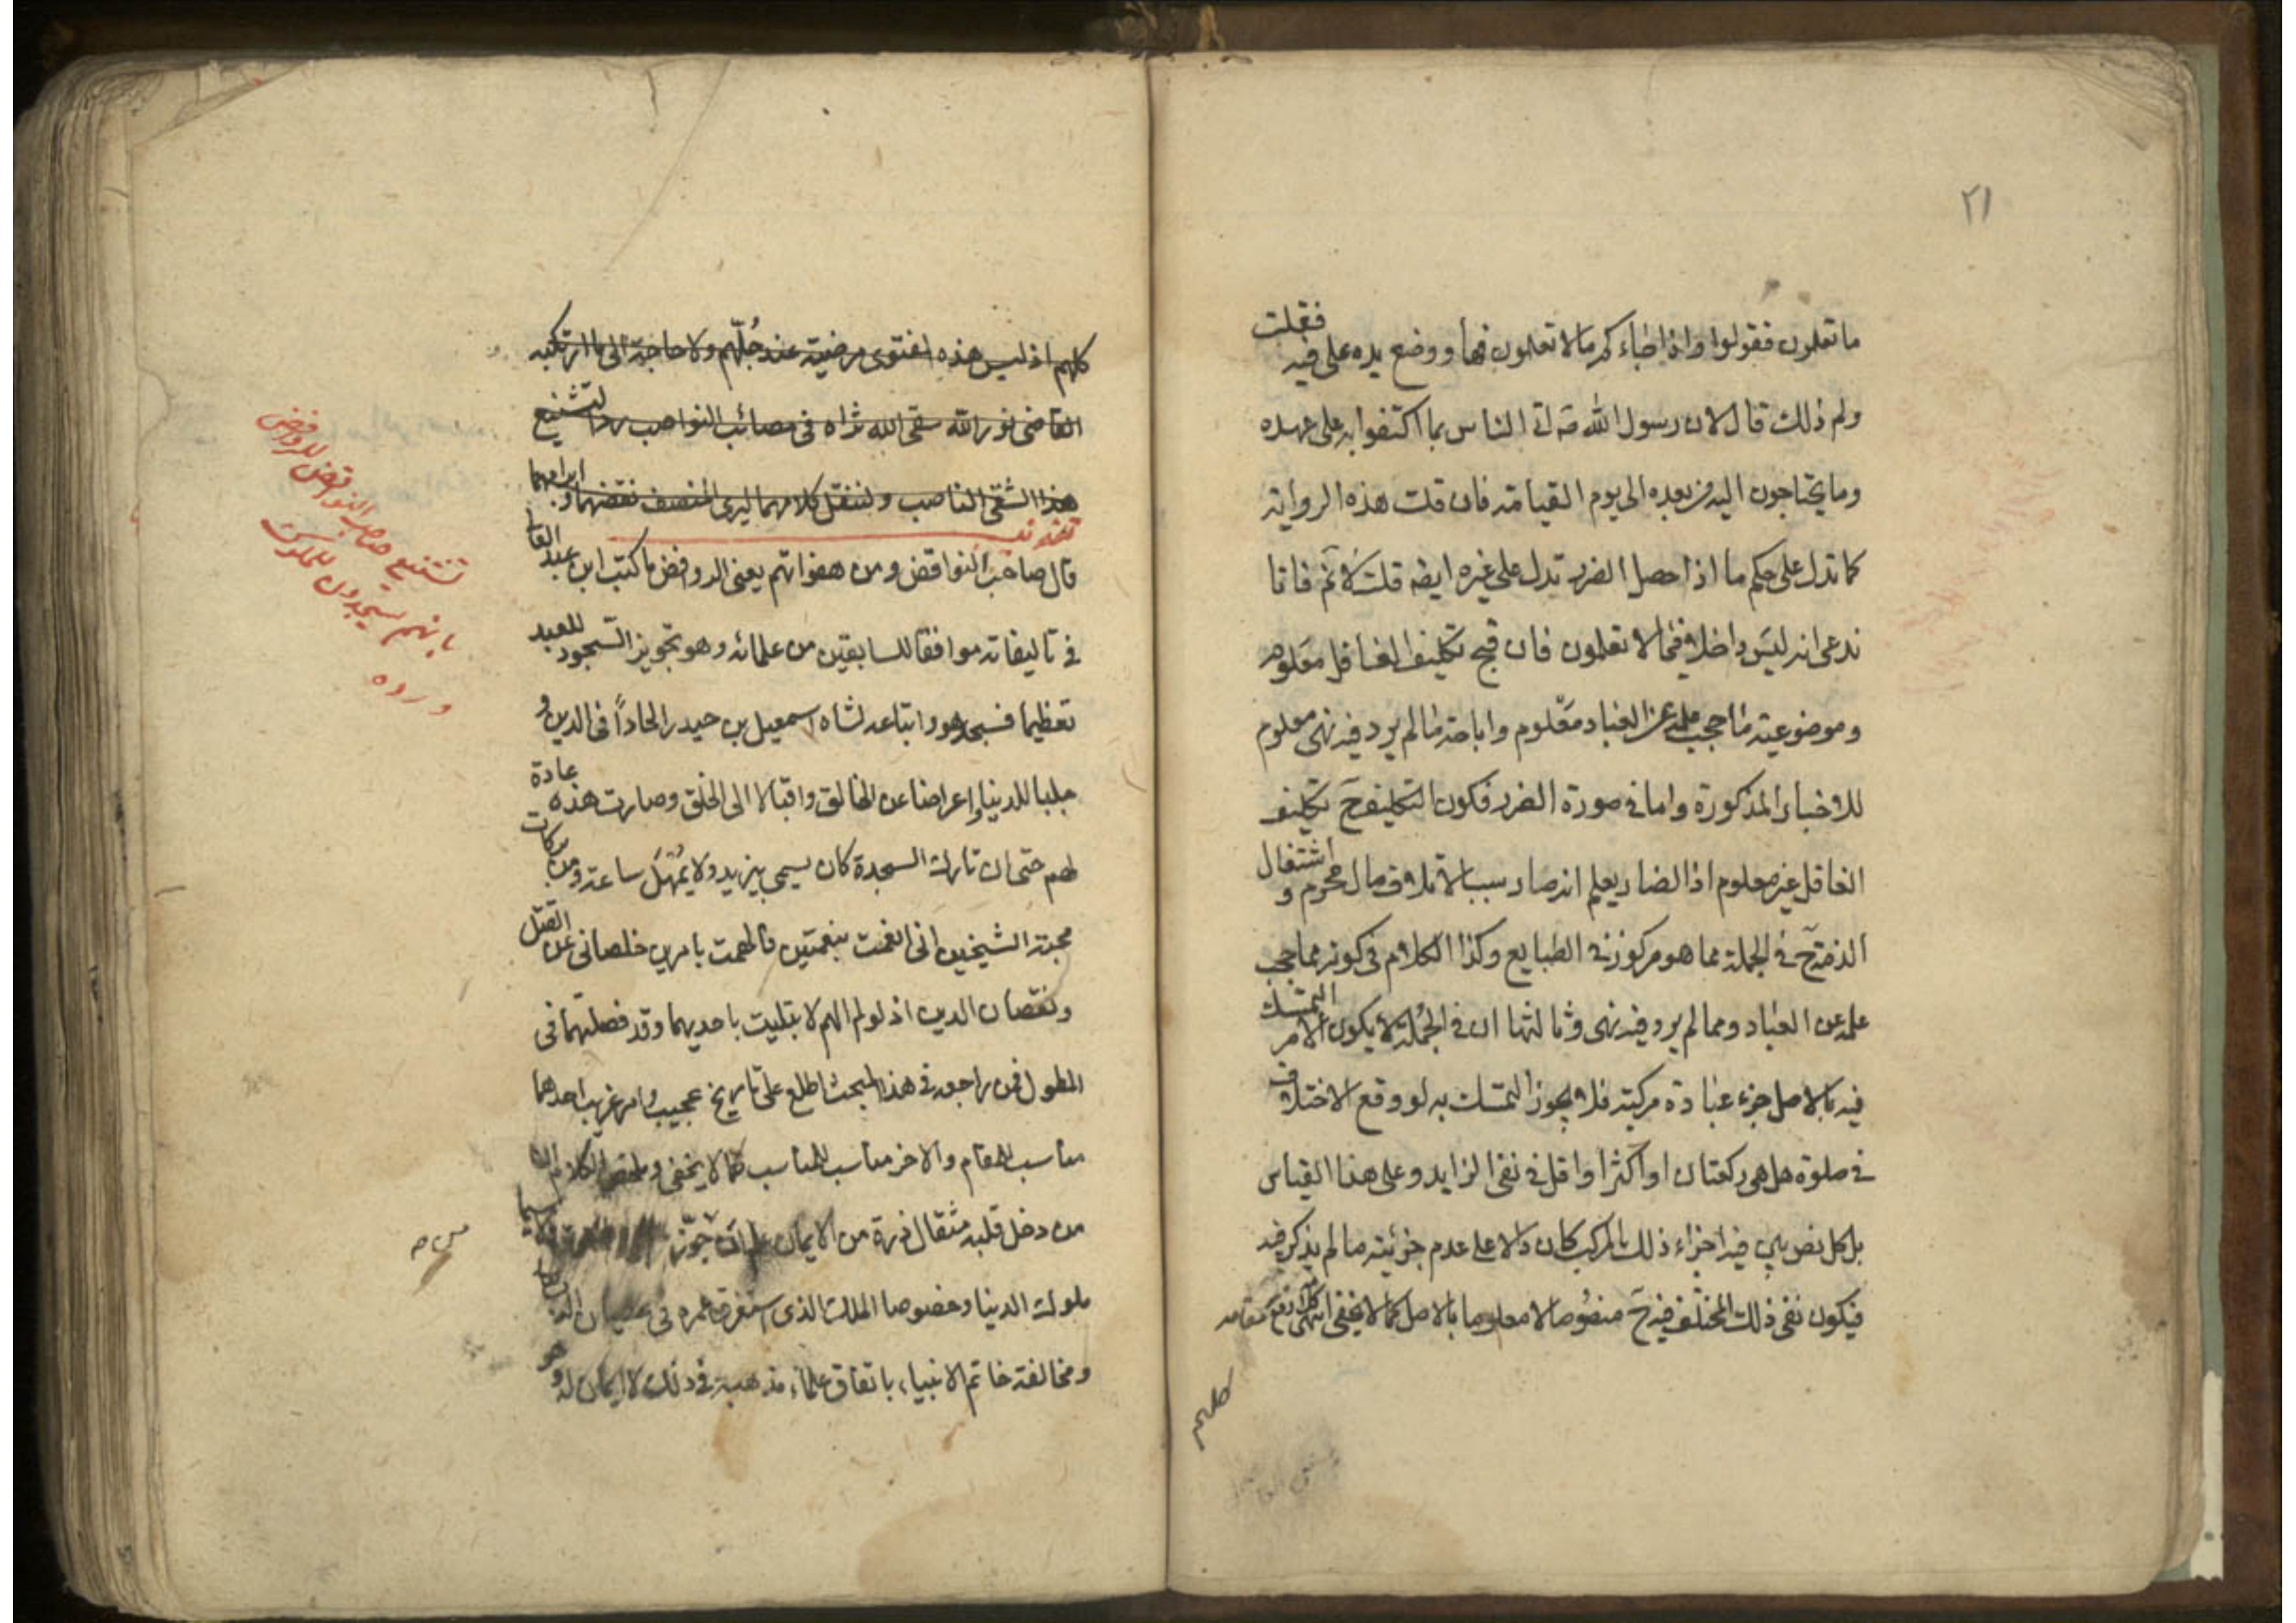 ٢١
ما تعلمون فقولوا واذا جاءكم مالا تعلمون فها ووضع يده على فيه فقلت
ولم ذلك قال لان رسول الله صه اتى الناس بما اكتفوا به على عهده
وما يحتاجون اليه من بعده الى يوم القيامة فان قلت هذه الرواية
كما تدل على حكم ما اذا حصل الضرر تدل على غيره ايضه قلت لا نم فانا
ندعى انه ليس داخلا فيما لا تعلمون فان قبح تكليف الغافل معلوم
وموضوعية ما حجب علمه عن العباد معلوم واباحة ما لم يرد فيه نهى معلوم
للاخبار المذكورة واما في صورة الضرر فكون التكليف ح تكليف
الغافل غير معلوم اذ الضار يعلم انه صار سببا لاتلاف مال محرم و اشتغال
الذمة ح في الجملة مما هو مركوز في الطبايع وكذا الكلام في كونه مما حجب
علمه عن العباد ومما لم يرد فيه نهى وثالثها ان في الجملة لا يكون الامر التمسك
فيه بالاصل جزء عبادة مركبة فلا يجوز التمسك به لو وقع الاختلاف
في صلوة هل هي ركعتان او اكثر او اقل في نفى الزايد وعلى هذا القياس
بل كل نص بين فيه اجزاء ذلك المركب كان دالا على عدم جزئية ما لم يذكر فيه
فيكون نفى ذلك المختلف فيه ح منصوصا لا معلوما بالاصل كما لا يخفى انتهى كلامه رفع مقامه
كلهم
كلهم اذ ليس هذه الفتوى مرضية عند جلهم ولا حاجة الى ما ارتكبه
القاضى نور الله سقى الله ثراه في مصائب النواصب ردا لتشنيع
هذا الشقى الناصب ولننقل كلامهما ليرى المنصف نقضهما و ابرامهما
قال صاحب النواقض ومن هفواتهم يعنى الروافض ما كتب ابن عبد العا
في تاليفاته موافقا للسابقين من علمائه وهو تجويز السجود للعبد
تعظيما فسجد هو واتباعه لشاه اسمعيل بن حيدر الحادا في الدين و
جلبا للدنيا واعراضا عن الخالق واقبالا الى الخلق وصارت هذه عادة
لهم حتى ان تارك السجدة كان يسمى بيزيد ولا يمهل ساعة ومن بركات
محبة الشيخين انى انعمت بنعمتين فالهمت بامرين خلصانى عن القتل
ونقصان الدين اذ لو لم الهم لابتليت باحديهما وقد فصلتهما في
المطول فمن راجعه في هذا المبحث اطلع على تاريخ عجيب وامر غريب احدهما
مناسب للمقام والاخر مناسب للمناسب كما لا يخفى وملخص الكلام ان
من دخل قلبه مثقال ذرة من الايمان جوز سيما
ملوك الدنيا وخصوصا الملك الذى استغرق عمره في عصيان
ومخالفة خاتم الانبياء باتفاق علماء مذهبه في ذلك لا ايمان له و هو
تشنيع صاحب النواقض للروافض
بانهم يسجدون للملوك
ورده